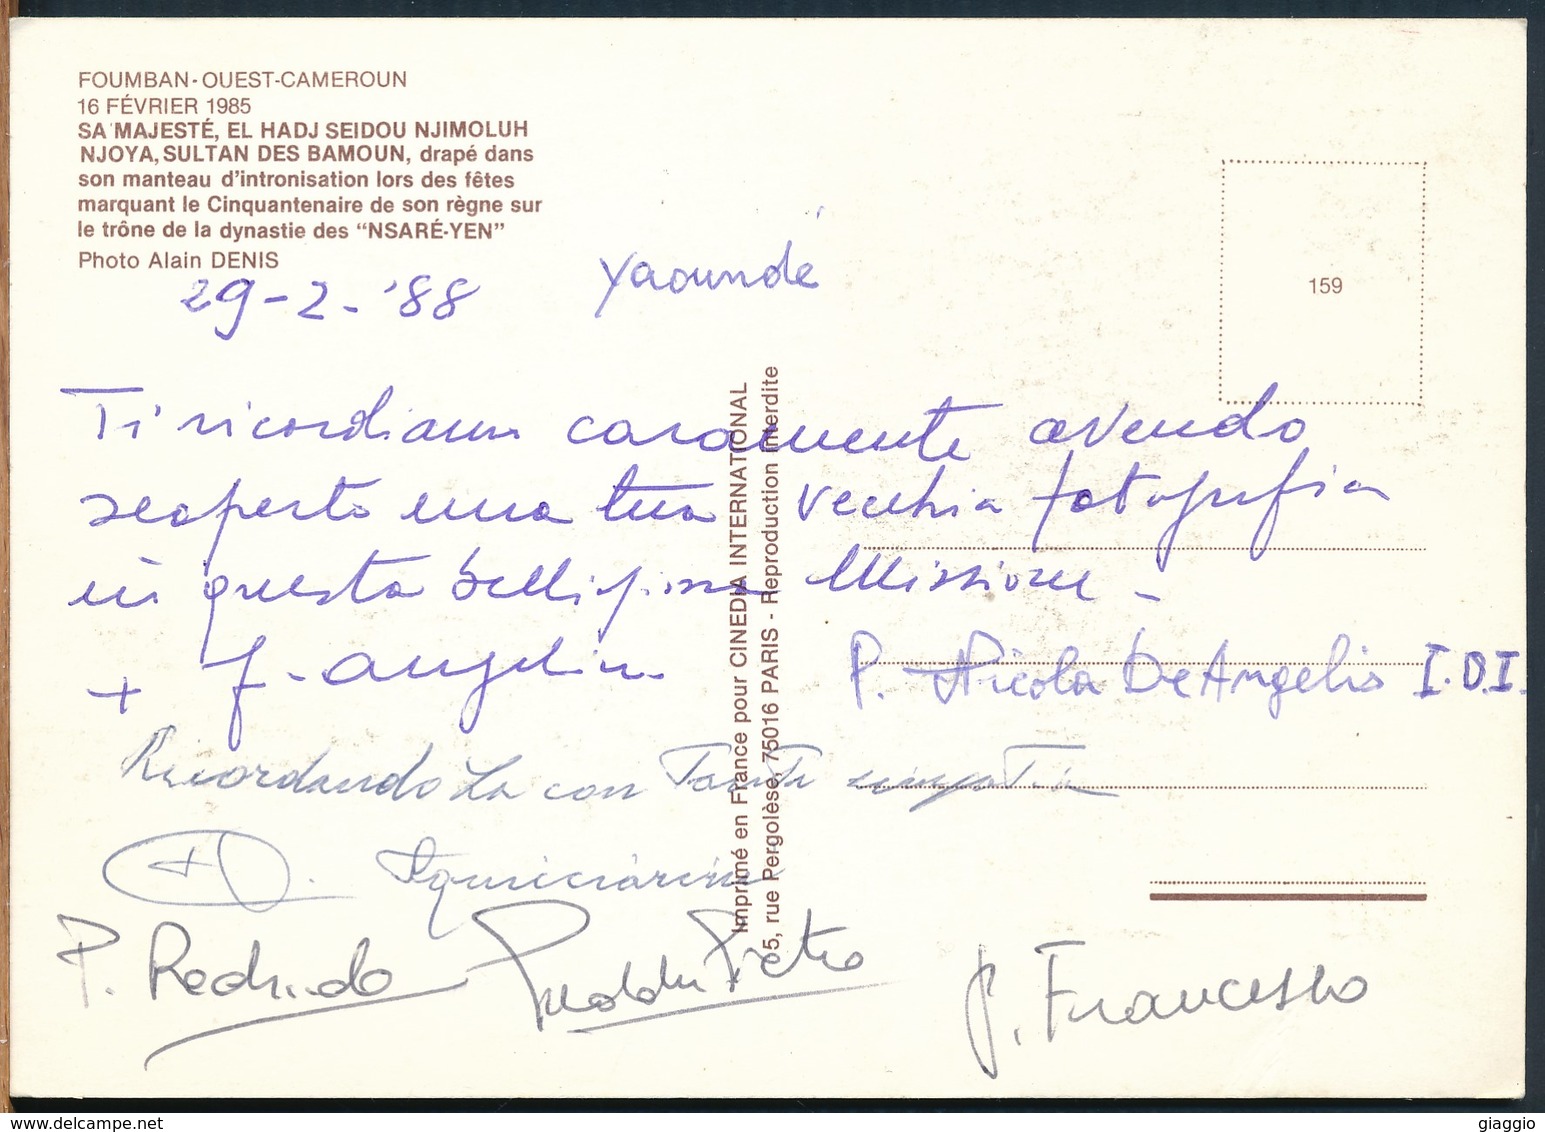 FOUMBAN-OUEST-CAMEROUN
16 FÉVRIER 1985
SA MAJESTÉ, EL HADJ SEIDOU NJIMOLUH
NJOYA, SULTAN DES BAMOUN, drapé dans
son manteau d'intronisation lors des fêtes
marquant le Cinquantenaire de son règne sur
le trône de la dynastie des "NSARÉ-YEN"
Photo Alain DENIS
159
29-2-'88 Yaoundé
Ti ricordiamo caramente avendo
scoperto una tua vecchia fotografia
in questa bellissima Missione -
+ f. angelin
P. Nicola De Angelis I.D.I.
RicordandoLa con Tanta simpatia
P. Pietro
P. Francesco
Imprimé en France pour CINEDIA INTERNATIONAL
5, rue Pergolèse, 75016 PARIS - Reproduction interdite
giaggio
delcampe.net